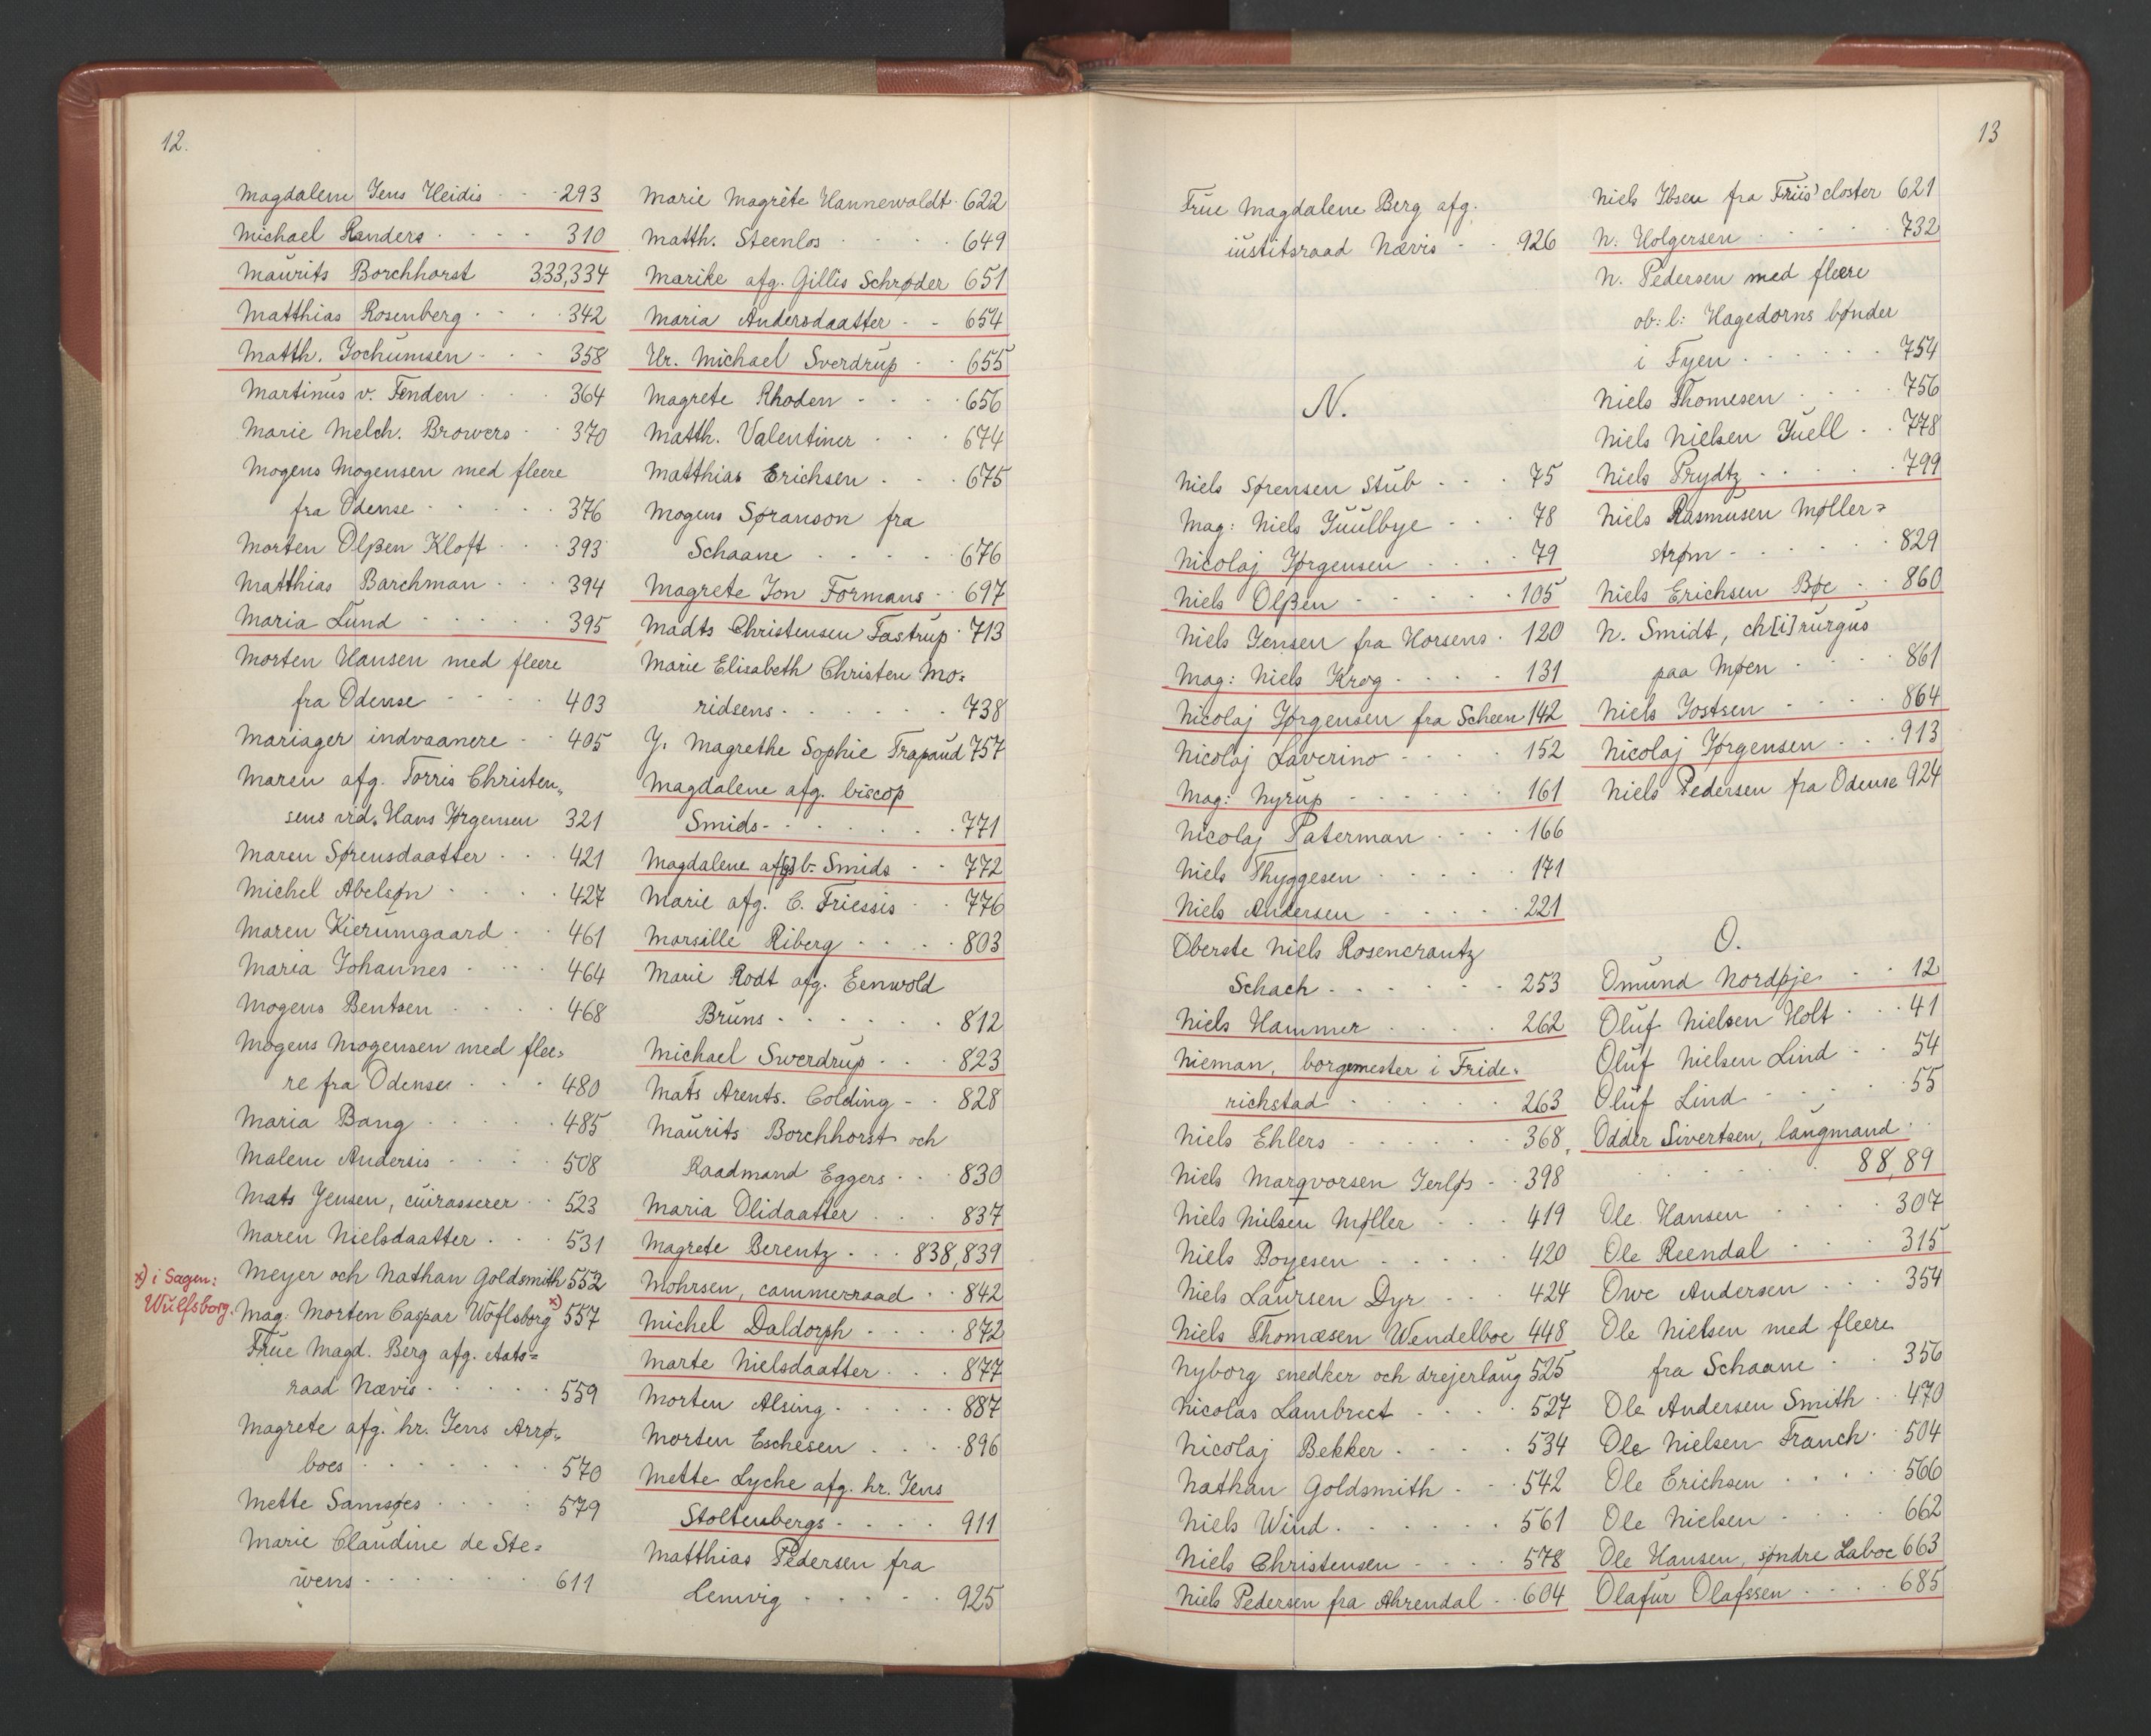 12.
Magdalene Jens Heidis - - - 293
Michael Randers - - - - 310
Maurits Borchhorst 333,334
Matthias Rosenberg - - - 342
Matth. Jochumsen - - - 358
Martinus v. Fenden - - - 364
Marie Melch. Browers - - 370
Mogens Mogensen med fleere
fra Odense - - - - - 376
Morten Olßen Kloft - - - 393
Matthias Barchman - - - 394
Maria Lund - - - - - 395
Morten Hansen med fleere
fra Odense - - - - 403
Mariager indvaanere - - 405
Maren afg. Torris Christen„
sens vid. Hans Jørgensen 321
Maren Sørensdaatter - - - 421
Michel Abelsøn - - - - 427
Maren Kierumgaard - - 461
Maria Johannes - - - - 464
Mogens Bentsen - - - - 468
Mogens Mogensen med flee=
re fra Odense - - - 480
Maria Bang - - - - - 485
Malene Andersis - - - - 508
Mats Jensen, cuirasserer - - 523
Maren Nielsdaatter - - - 531
Meyer och Nathan Goldsmith 552
x) i Sagen:
Wulfsborg.
Mag. Morten Caspar Woflsborg x) 557
Frue Magd. Berg afg. etats=
raad Nævis - - - - - 559
Magrete afg. hr. Jens Arrø„
boes - - - - - - 570
Mette Samsøes - - - - 579
Marie Claudine de Ste=
wens - - - - - - 611
Marie Magrete Hannewaldt - 622
Matth. Steenlos - - - - 649
Marike afg. Gillis Schrøder 651
Maria Andersdaatter - - 654
Hr. Michael Sverdrup - - 655
Magrete Rhoden - - - - 656
Matth. Valentiner - - - 674
Matthias Erichsen - - - 675
Mogens Søranson fra
Schaane - - - - - 676
Magrete Jon Formans - - 697
Madts Christensen Tastrup - 713
Marie Elisabeth Christen Mo=
ridsens - - - - - - 738
J. Magrethe Sophie Trapaud 757
Magdalene afg. biscop
Smids - - - - - - 771
Magdalene af[g] b. Smids - - 772
Marie afg. C. Friessis - - 776
Marsille Riberg - - - - 803
Marie Rodt afg. Eenwold
Bruns - - - - - - 812
Michael Swerdrup - - - 823
Mats Arents. Colding - - 828
Maurits Borchhorst och
Raadmand Eggers - - - 830
Maria Olidaatter - - - 837
Magrete Berentz - - - 838,839
Mohrsen, cammerraad - - 842
Michel Daldorph - - - - 872
Marte Nielsdaatter - - - 877
Morten Alsing - - - - - 887
Morten Eschesen - - - - 896
Mette Lyche afg. hr. Jens
Stoltenbergs - - - - 911
Matthias Pedersen fra
Lemvig - - - - - 925
13
Frue Magdalene Berg afg.
iustitsraad Nævis - - 926
N.
Niels Sørensen Stub - - - 75
Mag: Niels Juulbye - - - 78
Nicolaj Jørgensen - - - - 79
Niels Olßen - - - - - - 105
Niels Jensen fra Horsens - 120
Mag: Niels Krog - - - - 131
Nicolaj Jørgensen fra Scheen 142
Nicolaj Laverino - - - - 152
Mag: Nyrup - - - - - - 161
Nicolaj Paterman - - - - 166
Niels Thyggesen - - - - - 171
Niels Andersen - - - - - 221
Oberste Niels Rosencrantz
Schach - - - - - - 253
Niels Hammer - - - - 262
Nieman, borgemester i Fride=
richstad - - - - - - 263
Niels Ehlers - - - - - - 368
Niels Marqvorsen Jerløs - - 398
Niels Nielsen Møller - - - 419
Niels Boyesen - - - - - 420
Niels Laursen Dyr - - - 424
Niels Thomæsen Wendelboe 448
Nyborg snedker och drejerlaug 525
Nicolas Lambrect - - - - 527
Nicolaj Bekker - - - - 534
Nathan Goldsmith - - - 542
Niels Wind - - - - - - 561
Niels Christensen - - - - 578
Niels Pedersen fra Ahrendal - - 604
Niels Ibsen fra Friis'closter 621
N. Holgersen - - - - - 732
N. Pedersen med fleere
ob: l: Hagedorns bønder
i Fyen - - - - - - 754
Niels Thomesen - - - - 756
Niels Nielsen Juell - - 778
Niels Prydtz - - - - - 799
Niels Rasmusen Møller=
strøm - - - - - - 829
Niels Erichsen Bøe - - 860
N. Smidt, ch[i]rurgus
paa Møen - - - - 861
Niels Jostsen - - - - 864
Nicolaj Jørgensen - - - 913
Niels Pedersen fra Odense 924
O.
Omund Nordøje - - 12
Oluf Nielsen Holt - - - 41
Oluf Nielsen Lind - - 54
Oluf Lind - - - - - 55
Odder Sivertsen, laugmand - -
- - - - - - 88,89
Ole Hansen - - - - 307
Ole Reendal - - - 315
Owe Andersen - - - 354
Ole Nielsen med fleere
fra Schaane - - 356
Ole Andersen Smith - - 470
Ole Nielsen Franch - - 504
Ole Erichsen - - - - - 566
Ole Nielsen - - - - 662
Ole Hansen, søndre Laboe 663
Olafur Olafssen - - - - 685